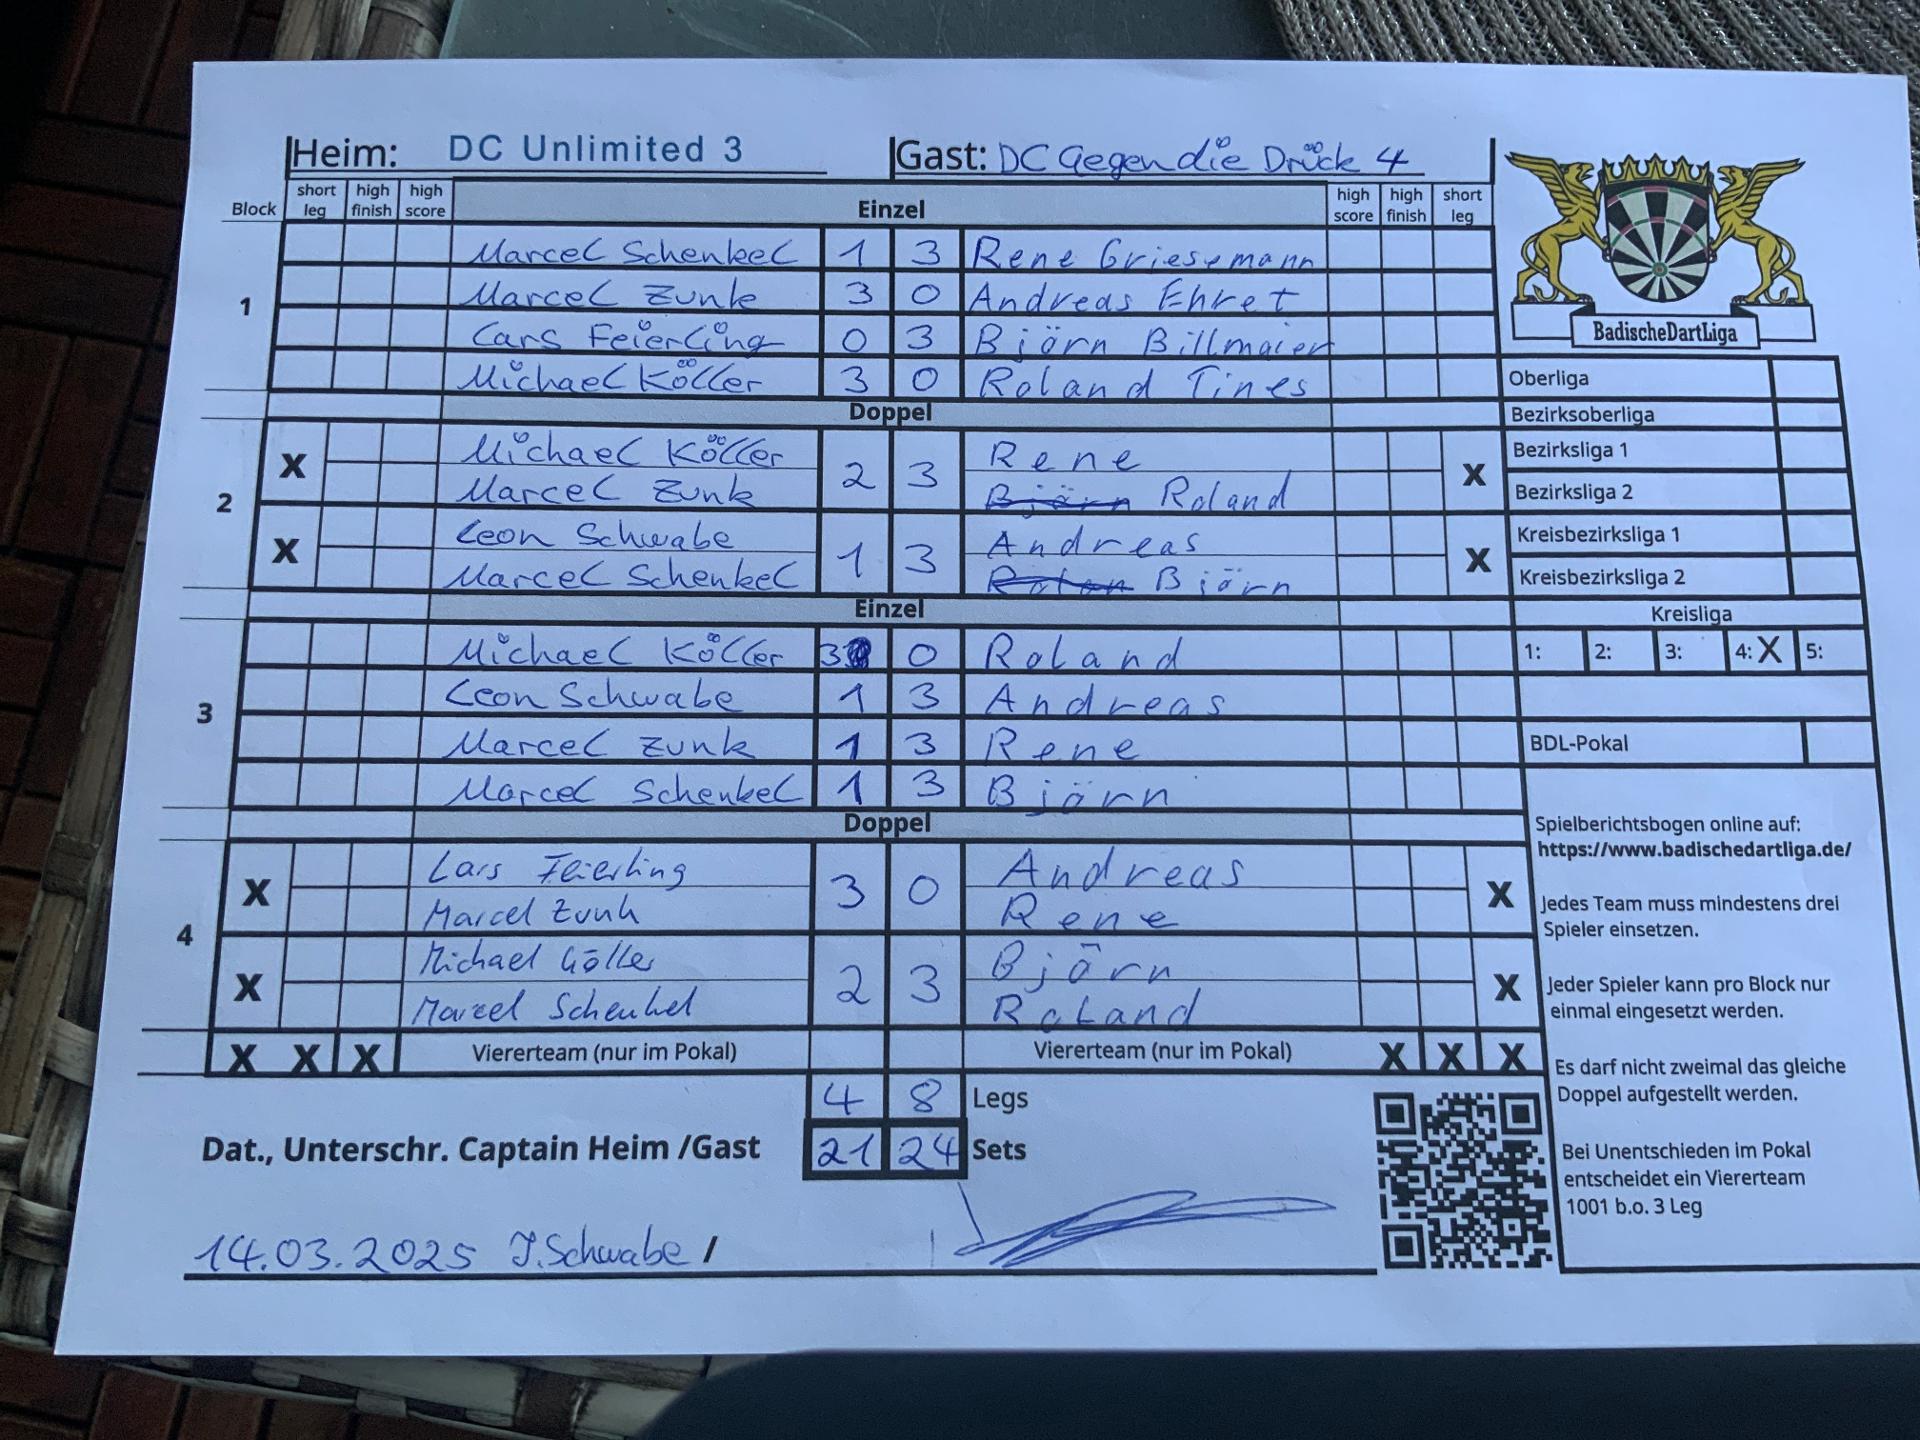 Heim: DC Unlimited 3 Gast: DC Gegen die Drück 4
Block short leg high finish high score Einzel high score high finish short leg
1
Marcel Schenkel 1 3 Rene Griesemann
Marcel Zunk 3 0 Andreas Ehret
Lars Feierling 0 3 Björn Billmaier
Michael Köller 3 0 Roland Tines
Doppel
2
X Michael Köller 2 3 Rene X
Marcel Zunk Björn Roland
X Leon Schwabe 1 3 Andreas X
Marcel Schenkel Rolan Björn
Einzel
3
Michael Köller 3 0 Roland
Leon Schwabe 1 3 Andreas
Marcel Zunk 1 3 Rene
Marcel Schenkel 1 3 Björn
Doppel
4
X Lars Feierling 3 0 Andreas X
Marcel Zunk Rene
X Michael Göller 2 3 Björn X
Marcel Schenkel Roland
X X X Viererteam (nur im Pokal) Viererteam (nur im Pokal) X X X
4 8 Legs
Dat., Unterschr. Captain Heim /Gast 21 24 Sets
14.03.2025 J.Schwabe /
BadischeDartLiga
Oberliga
Bezirksoberliga
Bezirksliga 1
Bezirksliga 2
Kreisbezirksliga 1
Kreisbezirksliga 2
Kreisliga
1: 2: 3: 4: X 5:
BDL-Pokal
Spielberichtsbogen online auf:
https://www.badischedartliga.de/
Jedes Team muss mindestens drei
Spieler einsetzen.
Jeder Spieler kann pro Block nur
einmal eingesetzt werden.
Es darf nicht zweimal das gleiche
Doppel aufgestellt werden.
Bei Unentschieden im Pokal
entscheidet ein Viererteam
1001 b.o. 3 Leg